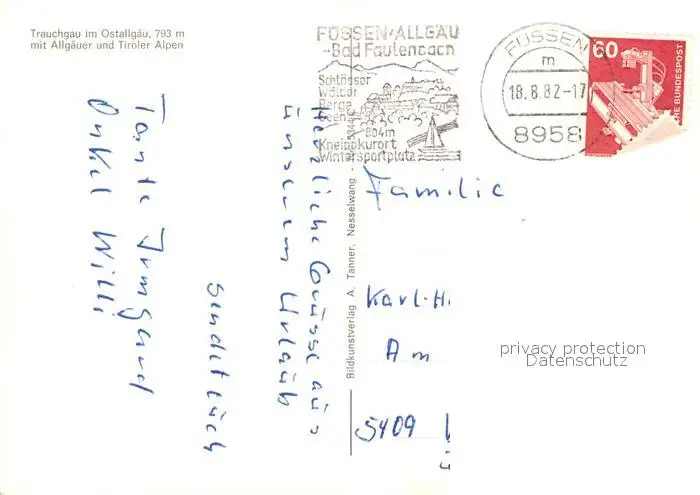 Trauchgau im Ostallgäu, 793 m
mit Allgäuer und Tiroler Alpen
FÜSSEN/ALLGÄU
-Bad Faulenbach
Schlösser
Wälder
Berge
Seen
804m
Kneippkurort
Wintersportplatz
FÜSSEN
m
18.8.82-17
8958
60
HE BUNDESPOST
Herzliche Grüsse aus
unserem Urlaub
sendet euch
Tante Irmgard
Onkel Willi
Bildkunstverlag A. Tanner, Nesselwang
Familie
Karl-H.
Am
5409
privacy protection
Datenschutz